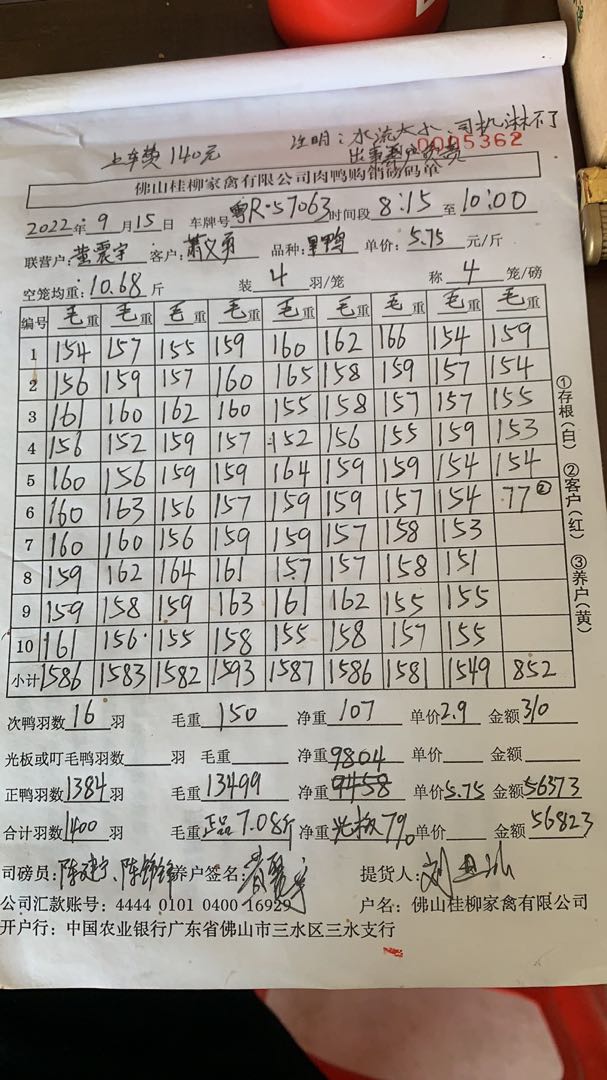 注明：水流太小，司机淋不了
上车费140元
0005362
佛山桂柳家禽有限公司肉鸭购销磅码单
2022年9月15日 车牌号粤R·57063 时间段8:15至10:00
联营户：黄震宇 客户：萧义勇 品种：里鸭 单价：5.75元/斤
空笼均重：10.68斤 装4羽/笼 称4笼/磅
编号 毛重 毛重 毛重 毛重 毛重 毛重 毛重 毛重 毛重
1 154 157 155 159 160 162 166 154 159
2 156 159 157 160 165 158 159 157 154
3 161 160 162 160 155 158 157 157 155
4 156 152 159 157 152 156 155 159 153
5 160 156 159 159 164 159 159 154 154
6 160 163 156 157 159 159 157 154 77②
7 160 160 156 159 159 157 158 153
8 159 162 164 161 157 157 158 151
9 159 158 159 163 161 162 155 155
10 161 156 155 158 155 158 157 155
小计 1586 1583 1582 1593 1587 1586 1581 1549 852
①存根（白） ②客户（红） ③养户（黄）
次鸭羽数16羽 毛重150 净重107 单价2.9 金额310
光板或叮毛鸭羽数 羽 毛重 净重9804 单价 金额
正鸭羽数1384羽 毛重13499 净重9458 单价5.75 金额56373
合计羽数1400羽 毛重正品7.08斤 净重光板7% 单价 金额56823
司磅员： 养户签名： 提货人：
公司汇款账号：4444 0101 0400 16929 户名：佛山桂柳家禽有限公司
开户行：中国农业银行广东省佛山市三水区三水支行